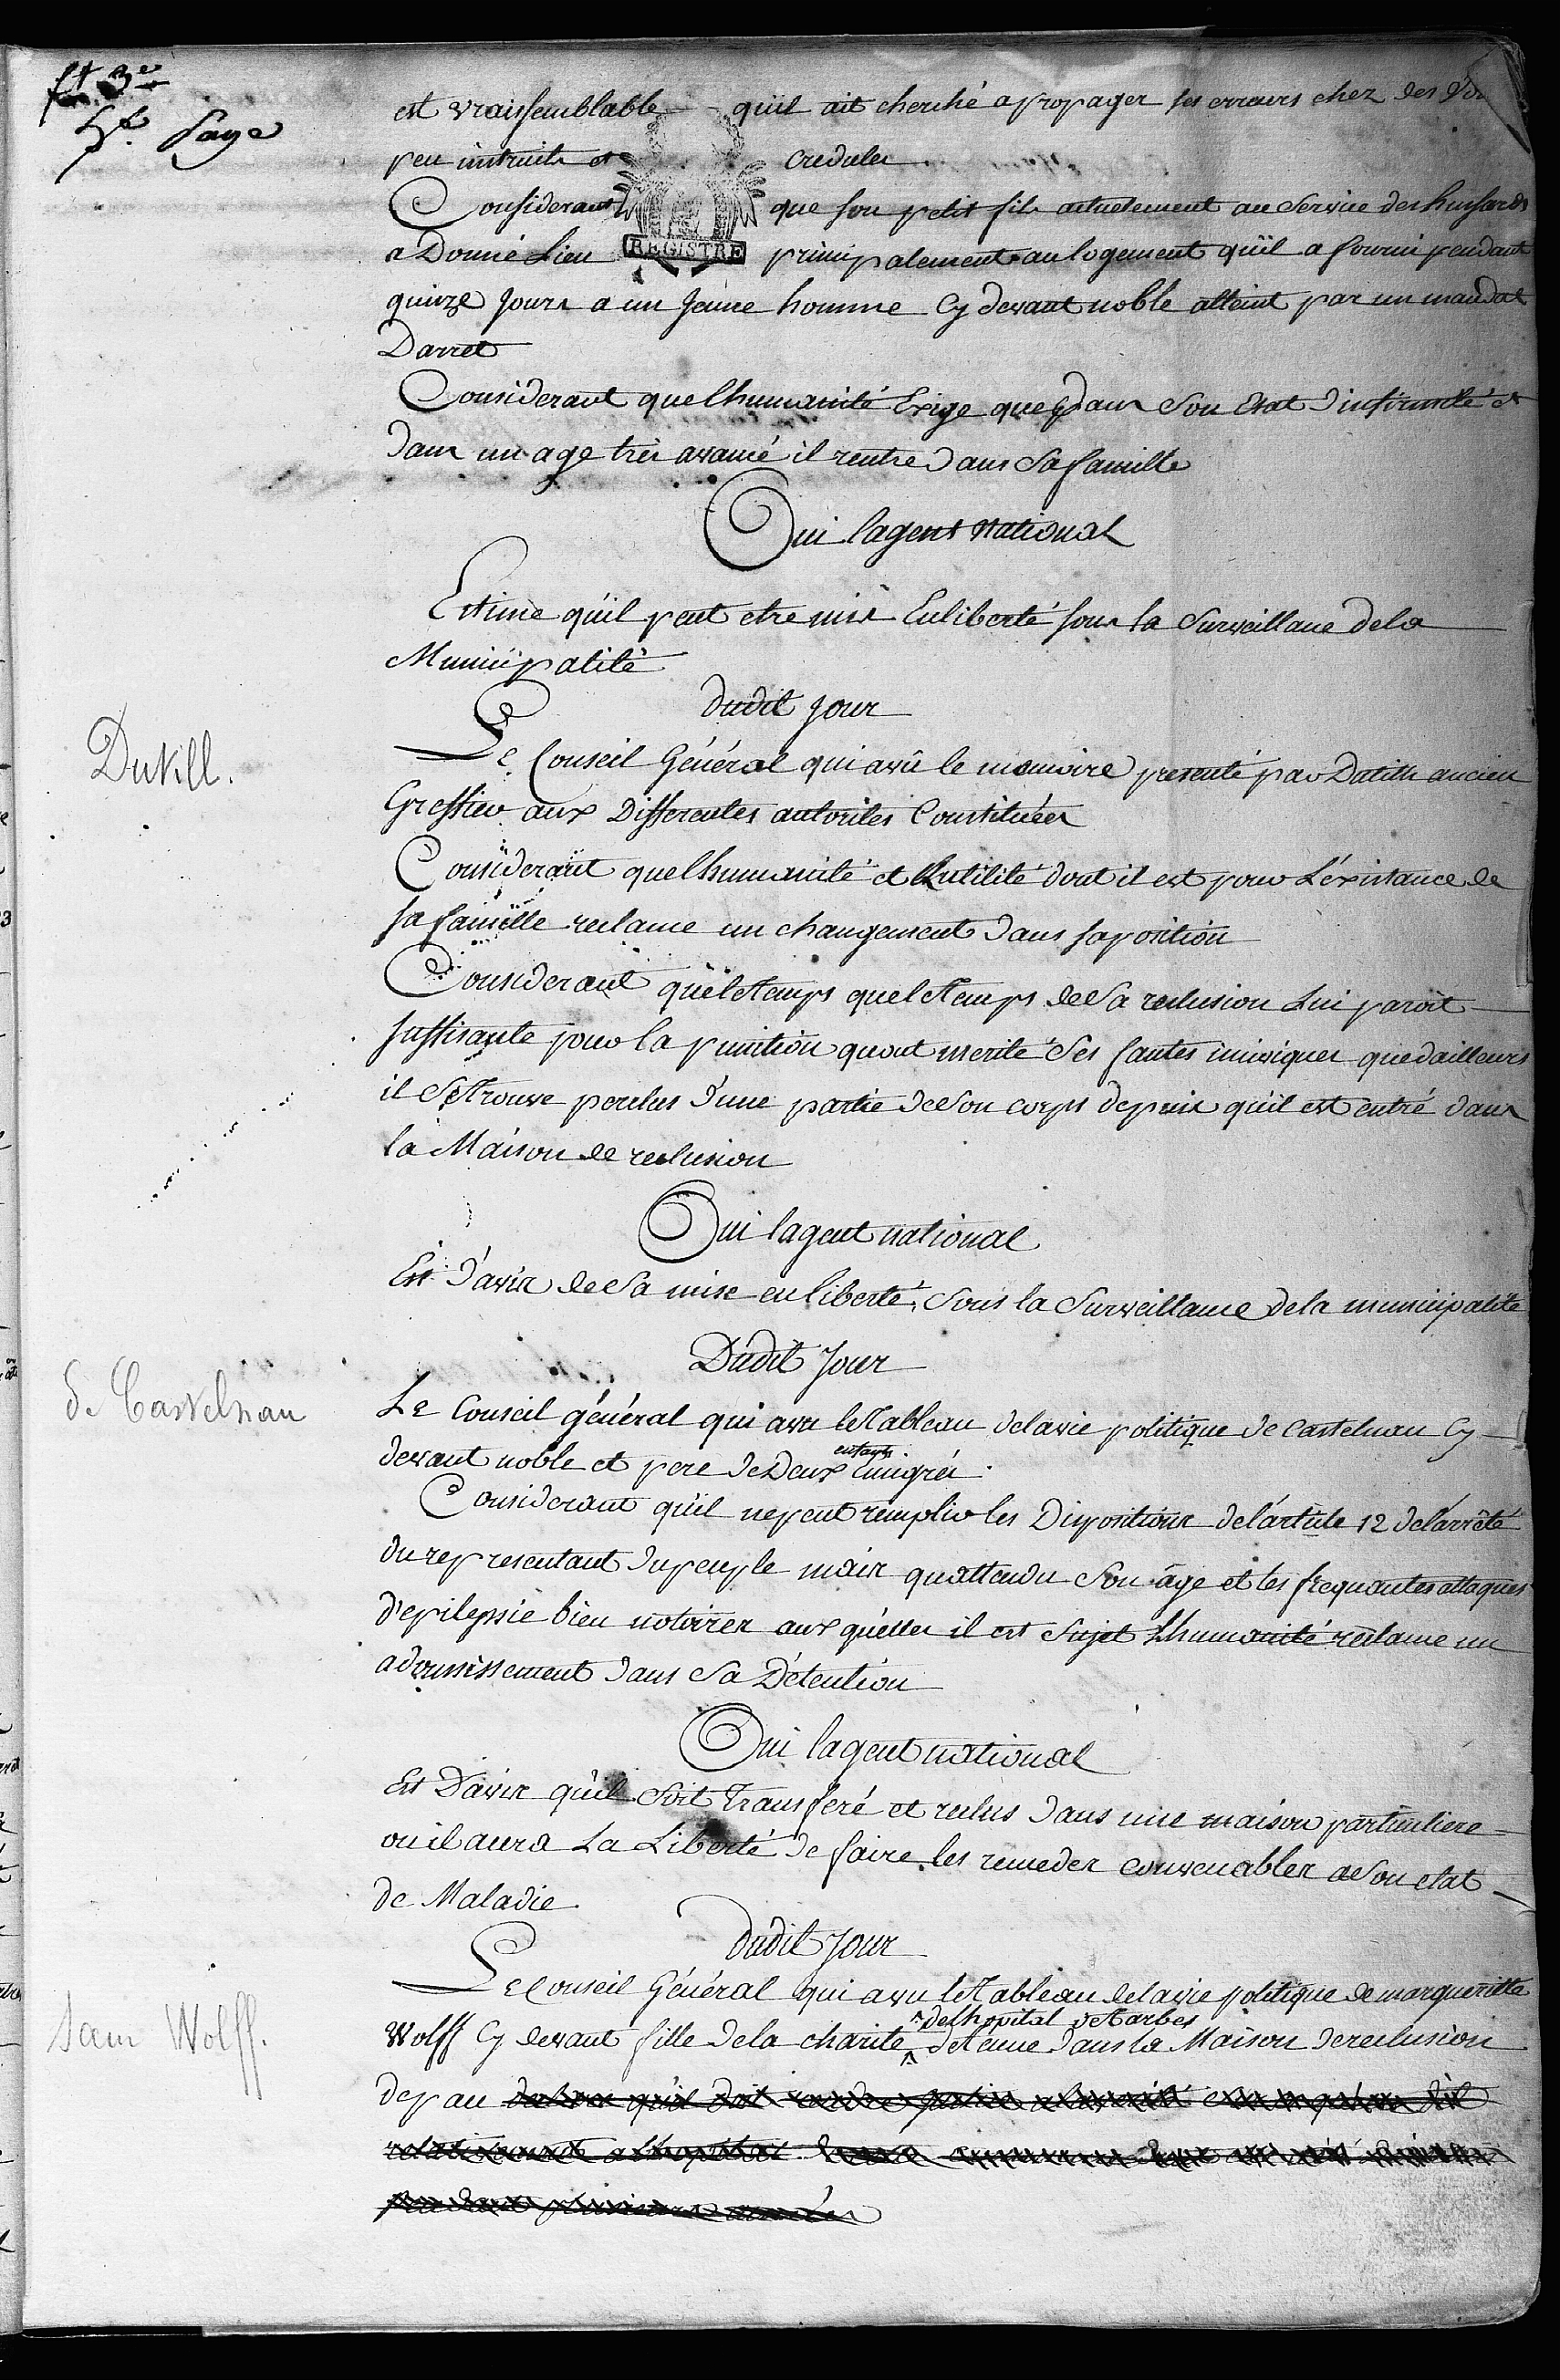 ft 3e
5e. page
est vraissemblable quil ait cherché a propager ses erreurs chez des
peu instruits et credules
Considerant que son petit fils actuelement au service des hussards
REGISTRE
a Donné Lieu principalement au logement quil a fourni pendant
quinze Jours a un Jeune homme Cy devant noble atteint par un mandat
Darret
Considerant que lhumanité Exige que dans son Etat dinfirmité et
dans un age très avancé il rentre dans sa famille
Oui lagent national
Estime qu'il peut etre mis En liberté sous la surveillance dela
Municipalité
dudit jour
Dutill.
Le Conseil Général qui a vû le memoire presenté par Datith ancien
Greffier aux Differentes autorités Constituées
Considerant que lhumanité et Lutilité dont il est pour L'éxistance de
sa famille reclame un changement dans sa position
Considerant que le tems que le tems de sa reclusion Lui paroit
suffisante pour la punition quont merité ses fautes inciviques que dailleurs
il se trouve perclus d'une partie de son corps depuis qu'il est entré dans
la Maison de reclusion
Oui lagent national
Est d'avis de sa mise en liberté, sous la surveillance de la municipalité
Dudit Jour
de Castelnau
Le Conseil général qui a vu le tableau de la vie politique de Castelnau Cy
devant noble et pere de Deux enfants Emigrés.
Considerant qu'il ne peut remplir les Dispositions de l'article 12 de l'arrêté
du representant du peuple mais qu'attendu son âge et les frequentes attaques
d'epilepsie bien notoires aux quelles il est sujet Lhumanité reclame un
adoussissement dans sa Détention
Oui lagent national
Est Davis qu'il soit transferé et reclus dans une maison particuliere
ou il aura La Liberté de faire les remedes convenables a son etat
de Maladie
dudit jour
Sœur Wolff.
Le Conseil Général qui a vu le tableau de la vie politique de margueritte
Wolff Cy devant fille de la charité de lhopital de Tarbes detenue dans la Maison de reclusion
de pau